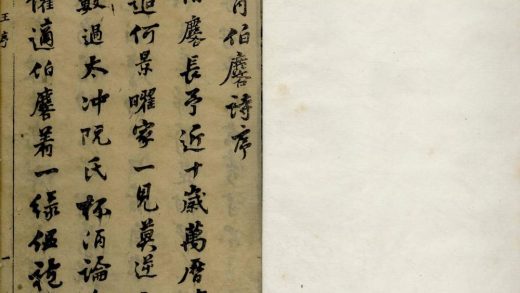 肖伯麐詩序
伯麐長予近十歲萬曆
追何景曜家一見莫逆
數過太冲阮氏杯酒論
懽適伯麐着一綠伍袍
王序
一